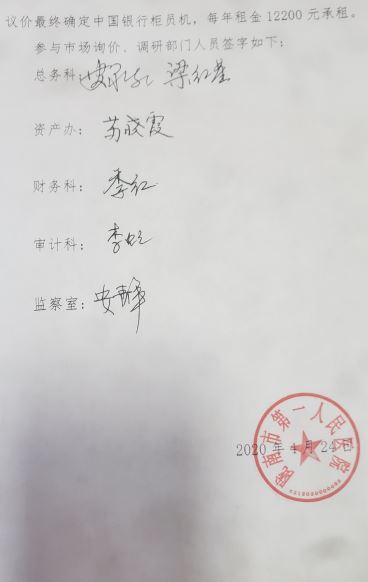 议价最终确定中国银行柜员机，每年租金12200元承租。
参与市场询价、调研部门人员签字如下：
总务科： 梁红星
资产办：苏晓霞
财务科：李红
审计科：李
监察室：安
2020年4月24日
陇南市第一人民医院